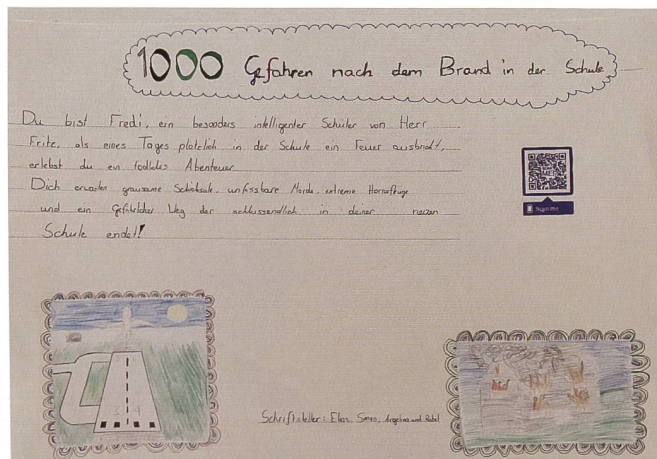 1000 Gefahren nach dem Brand in der Schule
Du bist Fredi, ein besonders intelligenter Schüler von Herr
Fritz, als eines Tages plötzlich in der Schule ein Feuer ausbricht,
erlebst du ein tödliches Abenteuer
Dich erwarten grausame Schicksale, unfassbare Morde, extreme Horrorflüge
und ein gefährlicher Weg der schlussendlich in deiner neuen
Schule endet!
Schriftsteller: Elias, Angelina und